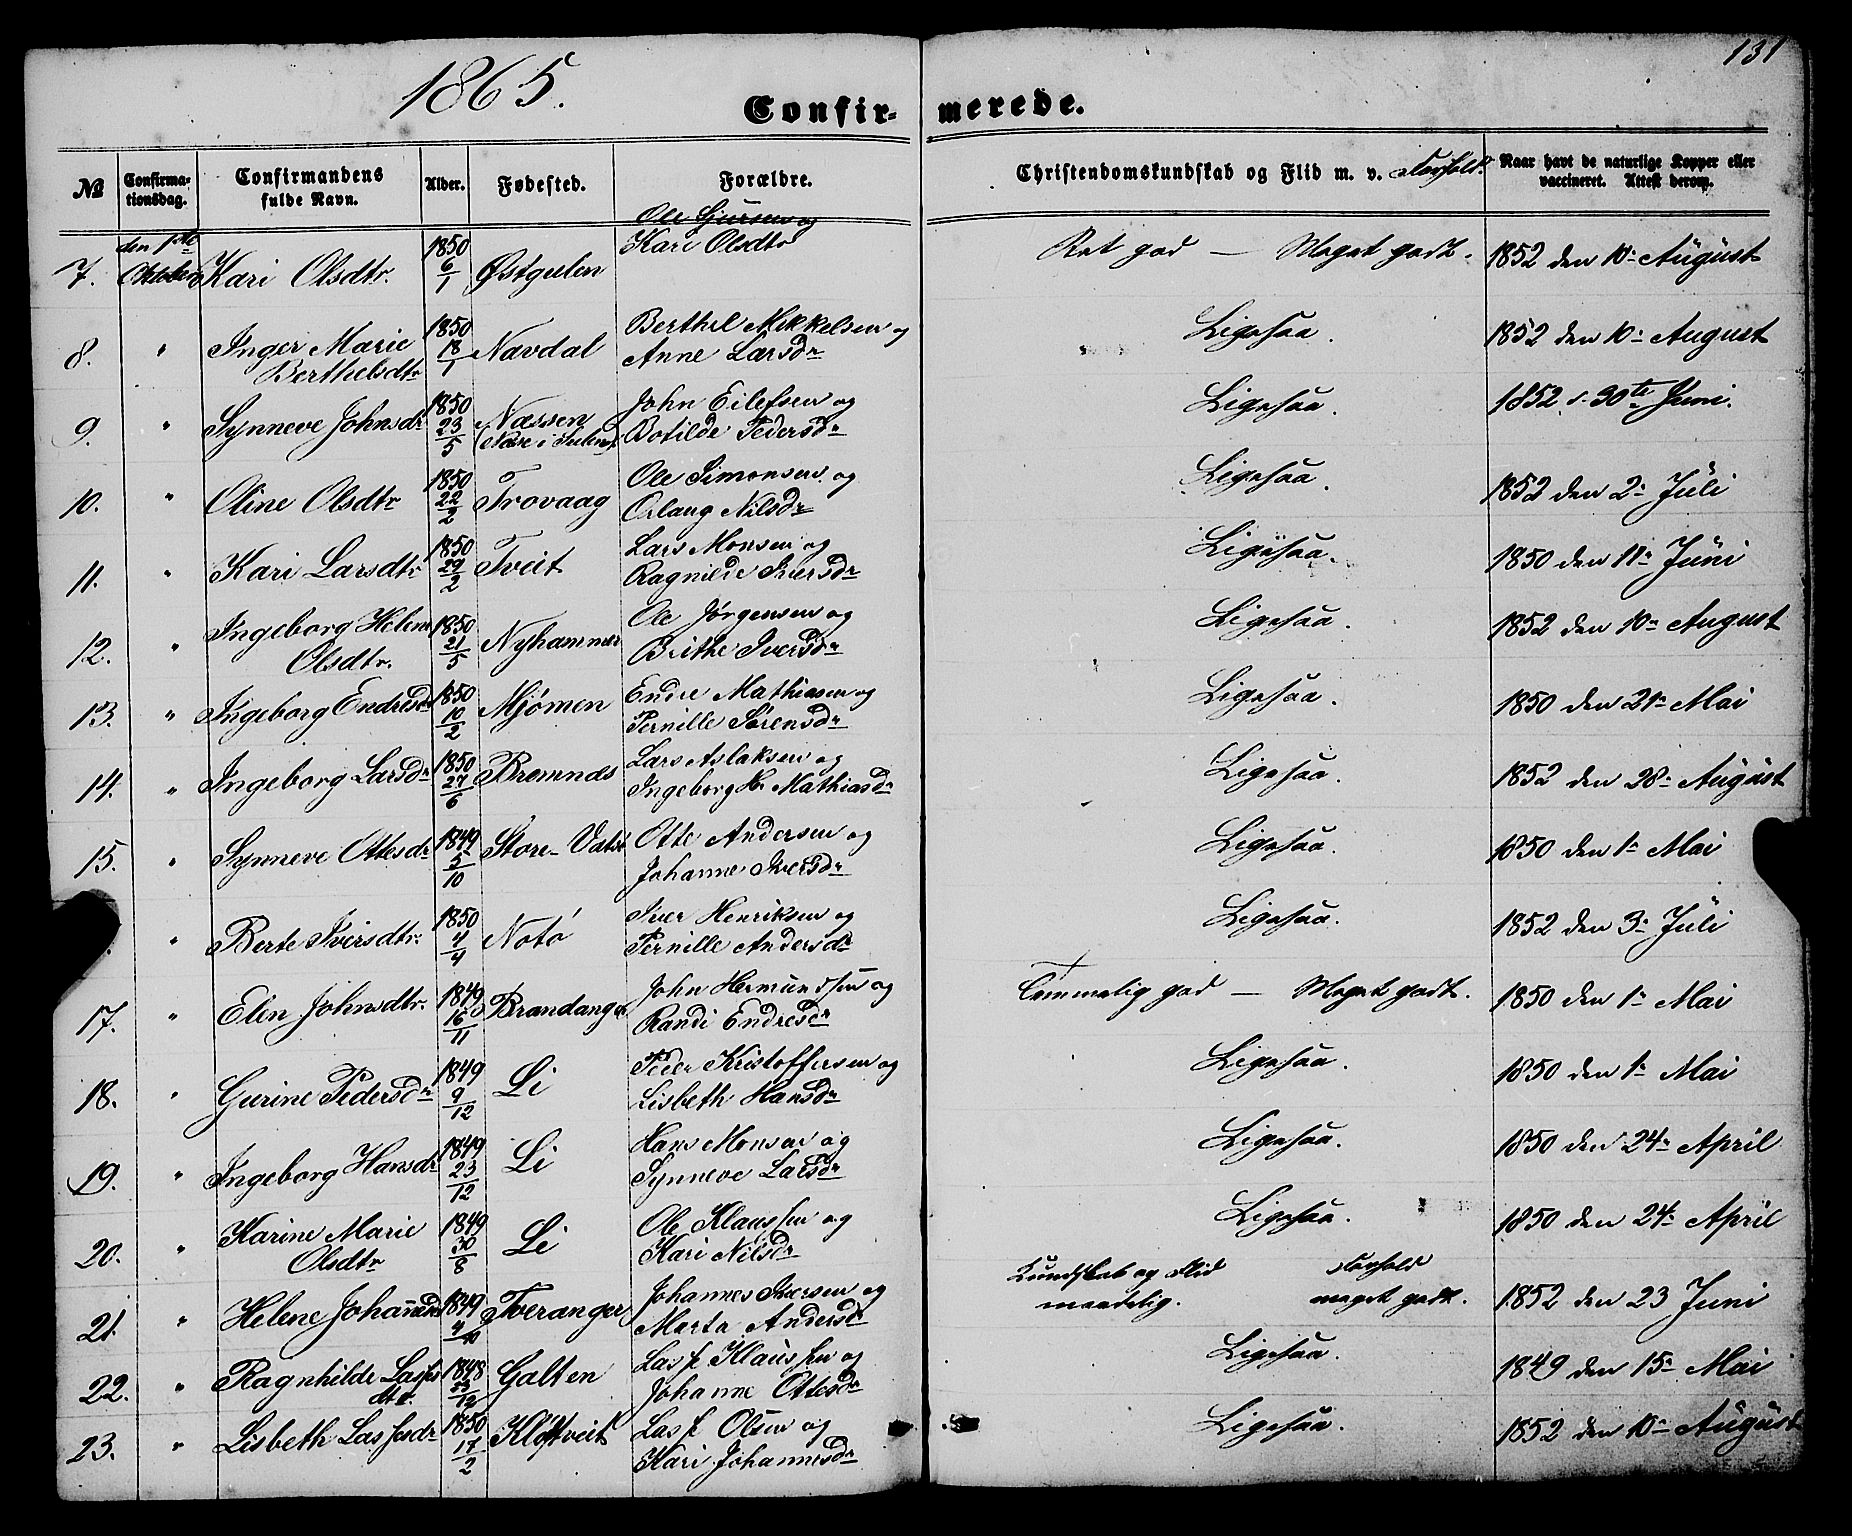 1865.
131
Confirmerede.
№ Confirmationsdag. Confirmandens fulde Navn. Alder. Fødested. Forældre. Christendomskundskab og Flid m. v. Forhold. Naar havt de naturlige Kopper eller vaccineret. Attest derom.
7. den 1ste Oktober Kari Olsdtr. 1850 6/1 Østgulen Ole Gjursen og Kari Olsdtr Ret god — Meget godt. 1852 den 10de August
8. " Inger Marie Berthelsdtr 1850 18/1 Navdal Berthel Mikkelsen og Anne Larsdr Ligesaa. 1852 den 10de August
9. " Synneve Johnsdr 1850 23/5 Næssen (Næse i Gulen) John Eilefsen og Botilde Pedersdr Ligesaa. 1852 d. 30te Juni.
10. " Oline Olsdtr 1850 22/2 Trovaag Ole Simonsen og Orlaug Nilsdr Ligesaa. 1852 den 2de Juli
11. " Kari Larsdtr 1850 29/2 Tveit Lars Monsen og Ragnilde Iversdr Ligesaa. 1850 den 11te Juni
12. " Ingeborg Helene Olsdtr. 1850 21/5 Nyhammer Ole Jørgensen og Brithe Iversdr Ligesaa. 1852 den 10de August
13. " Ingeborg Endresdr 1850 10/2 Mjømen Endre Mathiasen og Pernille Sørensdr Ligesaa. 1850 den 21de Mai
14. " Ingeborg Larsdr 1850 27/6 Bremnes Lars Aslaksen og Ingeborg H. Mathiasdr Ligesaa. 1852 den 28de August
15. " Synneve Ottesdr 1849 5/10 Store-Vatsø Otte Andersen og Johanne Iversdr Ligesaa. 1850 den 1de Mai
" Berte Iversdtr. 1850 4/4 Notø Iver Henriksen og Pernille Andersdr Ligesaa. 1852 den 3de Juli
17. " Elen Johnsdtr. 1849 16/11 Brandanger John Hermundsen og Randi Endresdr Temmelig god — Meget godt. 1850 den 1de Mai
18. " Gurine Pedersdr 1849 9/12 Li Peder Kristoffersen og Lisbeth Hansdr Ligesaa. 1850 den 1de Mai
19. " Ingeborg Hansdr 1849 23/12 Li Hans Monsen og Synneve Larsdr Ligesaa. 1850 den 24de April
20. " Karine Marie Olsdtr 1849 30/8 Li Ole Klaussen og Kari Nilsdr Ligesaa. 1850 den 24de April
21. " Helene Johannesdr 1849 4/10 Tveranger Johannes Iversen og Marta Andersdr Kundskab og Flid maadelig. Forhold meget godt. 1852 den 23 Juni
22. " Ragnhilde Lasses dtr. 1848 /12 Galten Lasse Klaussen og Johanne Ottesdr Ligesaa. 1849 den 15de Mai
23. " Lisbeth Lassesdr 1850 17/2 Kløftveit Lasse Olsen og Kari Johannesdr Ligesaa. 1852 den 10de August